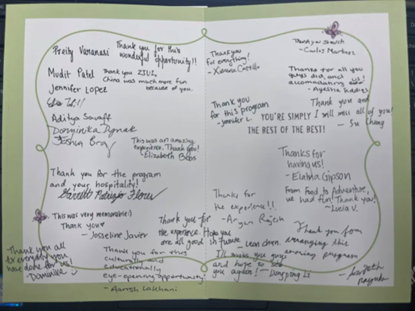 Preity Varanasi
Thank you for this
wonderful opportunity!!
Mudit Patel
Thank you ZSU!
China was much more fun
because of you.
Jennifer Lopez
Aditya
Dominika
Joshua
This was an amazing
experience. Thank you!
- Elizabeth
Thank you for the program
and your hospitality!
Garrett
This was very memorable!)
Thank you
- Josseline Javier
Thank you all
for everything you
have done for us!
- Dominique
Thank you for this
culturally and
educationally
eye-opening opportunity!
- Aarish Lakhani
Thank you
for everything!
- Ximena Castillo
Thank you
for this program
- Jennifer L.
Thank you
- Carlos Martinez
Thanks for all you
guys did, and us!
accommodating
- Ayesha
Thank you and
I will miss all of you!
YOU'RE SIMPLY
THE BEST OF THE BEST!
Thanks for
having us!
- Gipson
From food to Adventure,
we had fun! Thank you!
- Lucia V.
Thanks for
the experience!!
- Aryan Rajesh
Thank you for
the experience. Hope you
are all good in future.
- Leon Chen
Thank you for
arranging this
program
I'll miss you guys
and hope to see
you again!